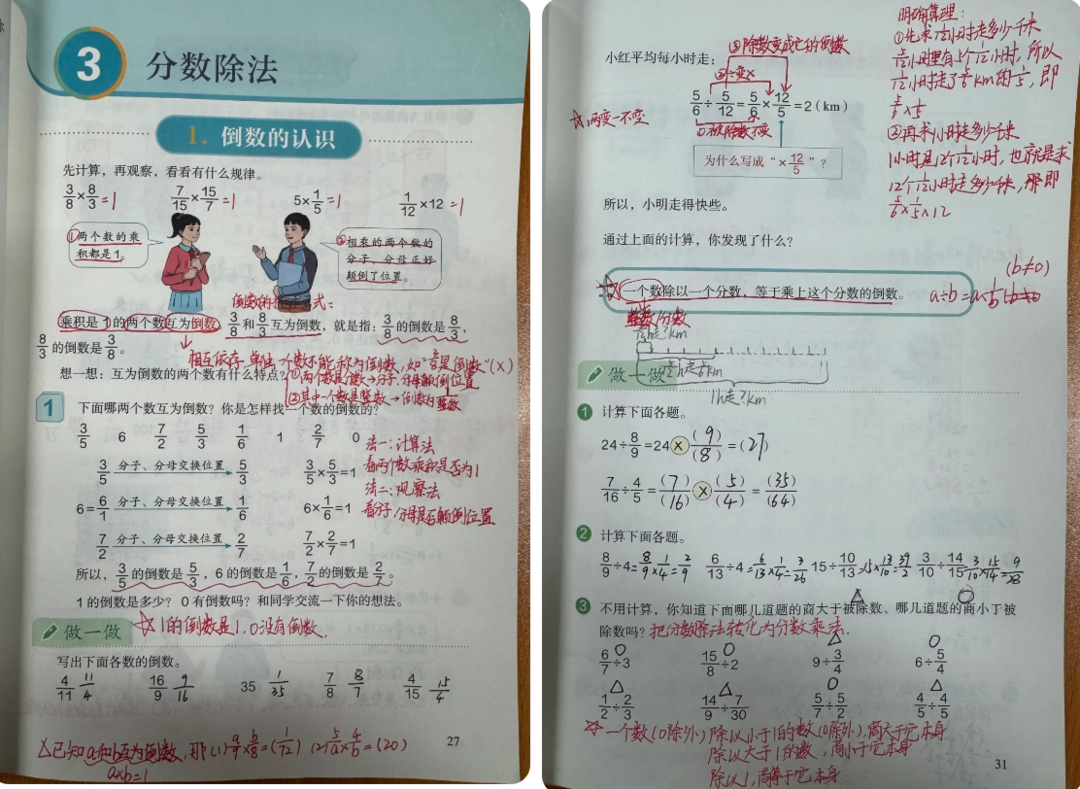 3 分数除法
1. 倒数的认识
先计算，再观察，看看有什么规律。
3/8×8/3=1 7/15×15/7=1 5×1/5=1 1/12×12=1
①两个数的乘积都是1。
②相乘的两个数的分子、分母正好颠倒了位置。
乘积是1的两个数互为倒数。3/8和8/3互为倒数，就是指：3/8的倒数是8/3，
8/3的倒数是3/8。
相互依存，单独一个数不能称为倒数
想一想：互为倒数的两个数有什么特点？
①两个数是分数→分子、分母颠倒位置
②其中一个数是整数→倒数的整数
1 下面哪两个数互为倒数？你是怎样找一个数的倒数的？
3/5 6 7/2 5/3 1/6 1 2/7 0
法一：计算法
看两个数乘积是否为1
法二：观察法
看分子、分母是否颠倒位置
3/5 分子、分母交换位置 5/3 3/5×5/3=1
6=6/1 分子、分母交换位置 1/6 6×1/6=1
7/2 分子、分母交换位置 2/7 7/2×2/7=1
所以，3/5的倒数是5/3，6的倒数是1/6，7/2的倒数是2/7。
1的倒数是多少？0有倒数吗？和同学交流一下你的想法。
做一做 ☆1的倒数是1，0没有倒数.
写出下面各数的倒数。
4/11 11/4 16/9 9/16 35 1/35 7/8 8/7 4/15 15/4
△已知a和b互为倒数，那(1) a/9×b/8=(1/72) (2) 5/a×4/b=(20)
a×b=1
27
③除数变成它的倒数
小红平均每小时走：
②÷变×
5/6÷5/12=5/6×12/5=2(km)
☆两变一不变
①被除数不变
为什么写成“×12/5”？
明确算理：
①先求1/12小时走多少千米
5/12小时里有5个1/12小时，所以
1/12小时走了5/6km的1/5，即
5/6×1/5
②再求1小时走多少千米
1小时是12个1/12小时，也就是求
12个1/12小时走多少千米，那即
5/6×1/5×12
所以，小明走得快些。
通过上面的计算，你发现了什么？
(b≠0)
☆一个数除以一个分数，等于乘上这个分数的倒数。 a÷b=a×1/b
整数/分数
1/12h走?km
5/12h走5/6km
1h走?km
做一做
1 计算下面各题。
24÷8/9=24×(9)/(8)=(27)
7/16÷4/5=(7)/(16)×(5)/(4)=(35)/(64)
2 计算下面各题。
8/9÷4=8/9×1/4=2/9 6/13÷4=6/13×1/4=3/26 15÷10/13=15×13/10=39/2 3/10÷14/15=3/10×15/14=9/28
3 不用计算，你知道下面哪几道题的商大于被除数、哪几道题的商小于被
△ ○
除数吗？把分数除法转化为分数乘法.
○ ○ △ ○
6/7÷3 15/8÷2 9÷3/4 6÷5/4
△ △ ○ △
1/2÷2/3 14/9÷7/30 5/7÷5/2 4/5÷4/5
☆一个数(0除外)除以小于1的数(0除外)，商大于它本身
除以大于1的数，商小于它本身
除以1，商等于它本身
31